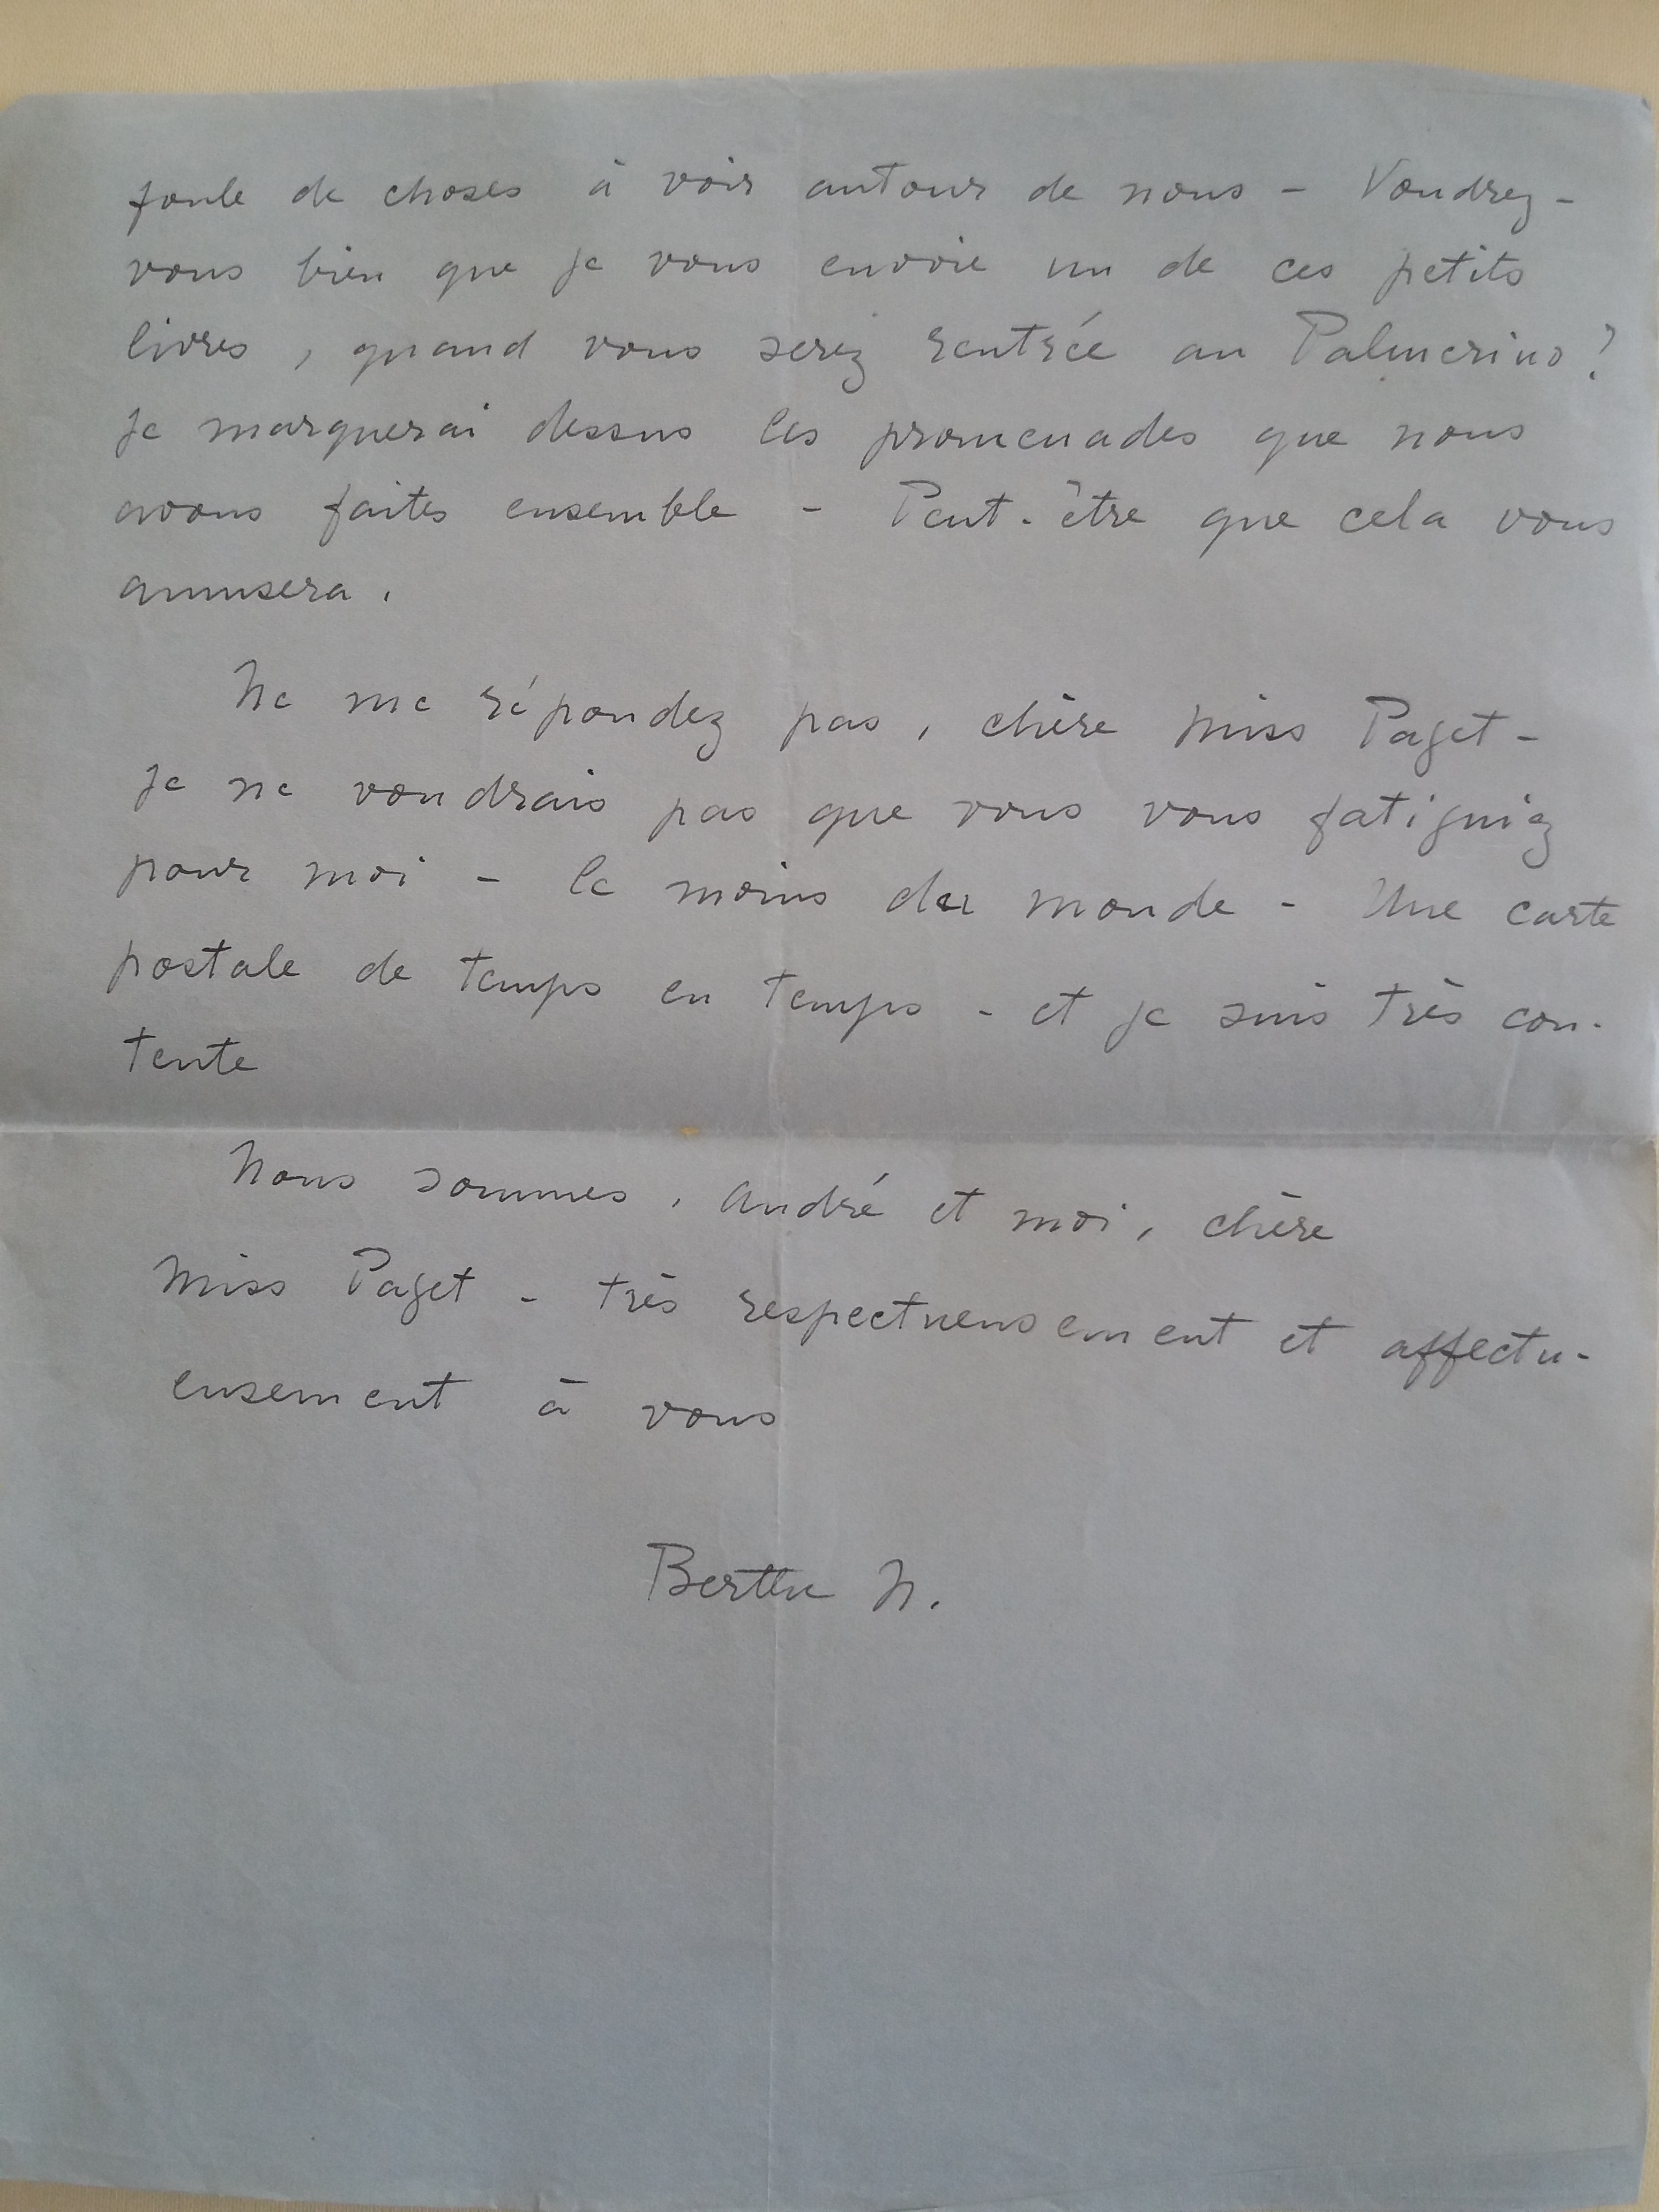 foule de choses à voir autour de nous - Voudrez-
vous bien que je vous envoie un de ces petits
livres, quand vous serez rentrée au Palmerino?
Je marquerai dessus les promenades que nous
avons faites ensemble - Peut-être que cela vous
amusera.
Ne me répondez pas, chère Miss Paget -
Je ne voudrais pas que vous vous fatiguiez
pour moi - le moins du monde - Une carte
postale de temps en temps - et je suis très con-
tente
Nous sommes, André et moi, chère
Miss Paget - très respectueusement et affectu-
eusement à vous
Berthe N.